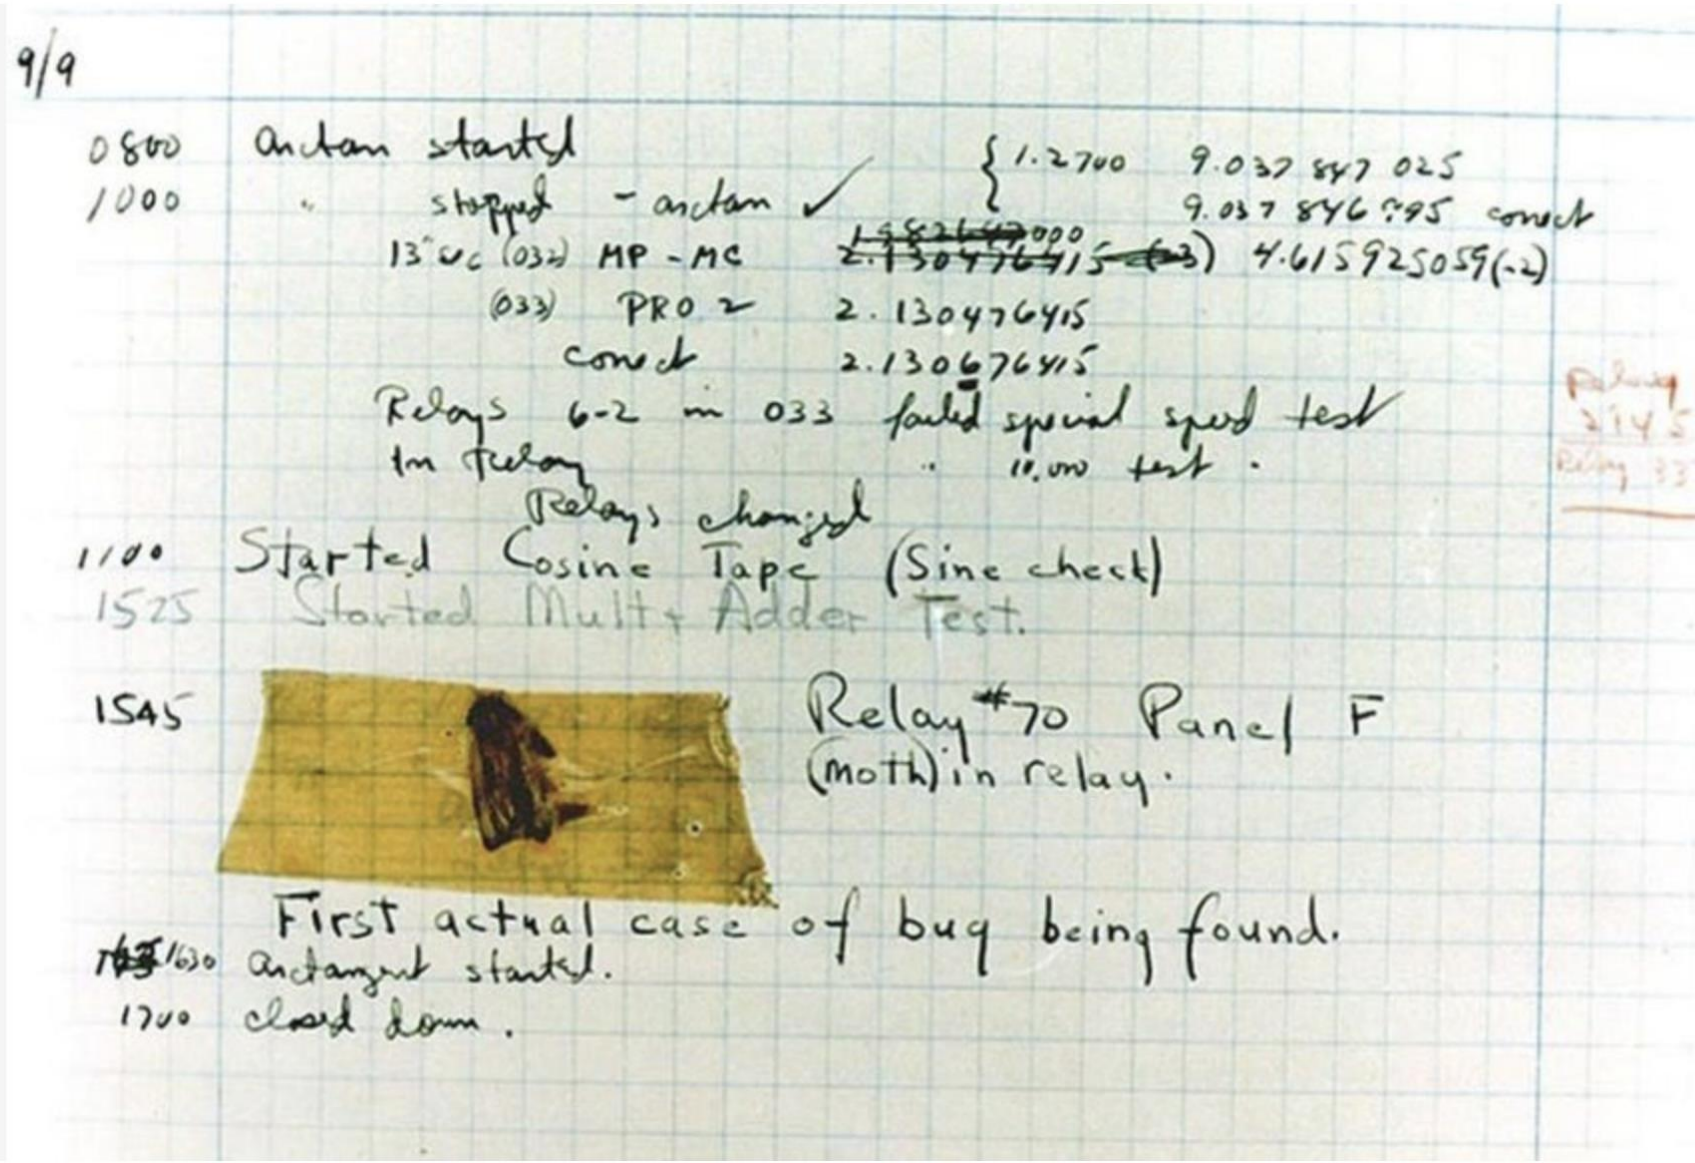 9/9
0800 arctan started { 1.2700 9.037 847 025
1000 " stopped - arctan ✓ 9.037 846 795 correct
13" sec (032) MP - MC 1.982647000 2.130476415 (-3) 4.615925059(-2)
(033) PRO 2 2.130476415
correct 2.130676415
Relays 6-2 in 033 failed special speed test
In Relay " 10,000 test .
Relays changed
1100 Started Cosine Tape (Sine check)
1525 Started Mult + Adder Test.
1545 Relay #70 Panel F
(moth) in relay.
First actual case of bug being found.
1630 arctangent started.
1700 closed down.
Relay
2145
Relay 33